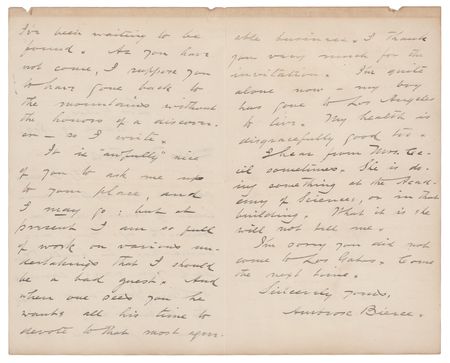 I've been waiting to be
found. As you have
not come, I suppose you
to have gone back to
the mountains without
the honors of a discover-
er — so I write.
It is "awfully" nice
of you to ask me up
to your place, and
I may go; but at
present I am so full
of work on various un-
dertakings that I should
be a bad guest. And
when one sees you he
wants all his time to
devote to that most agree-
able business. I thank
you very much for the
invitation. I'm quite
alone now — my boy
has gone to Los Angeles
to live. My health is
disgracefully good too.
I hear from Mrs. Ce-
cil sometimes. She is do-
ing something at the Acad-
emy of Sciences, or in that
building. What it is she
will not tell me.
I'm sorry you did not
come to Los Gatos. Come
the next time.
Sincerely yours,
Ambrose Bierce.